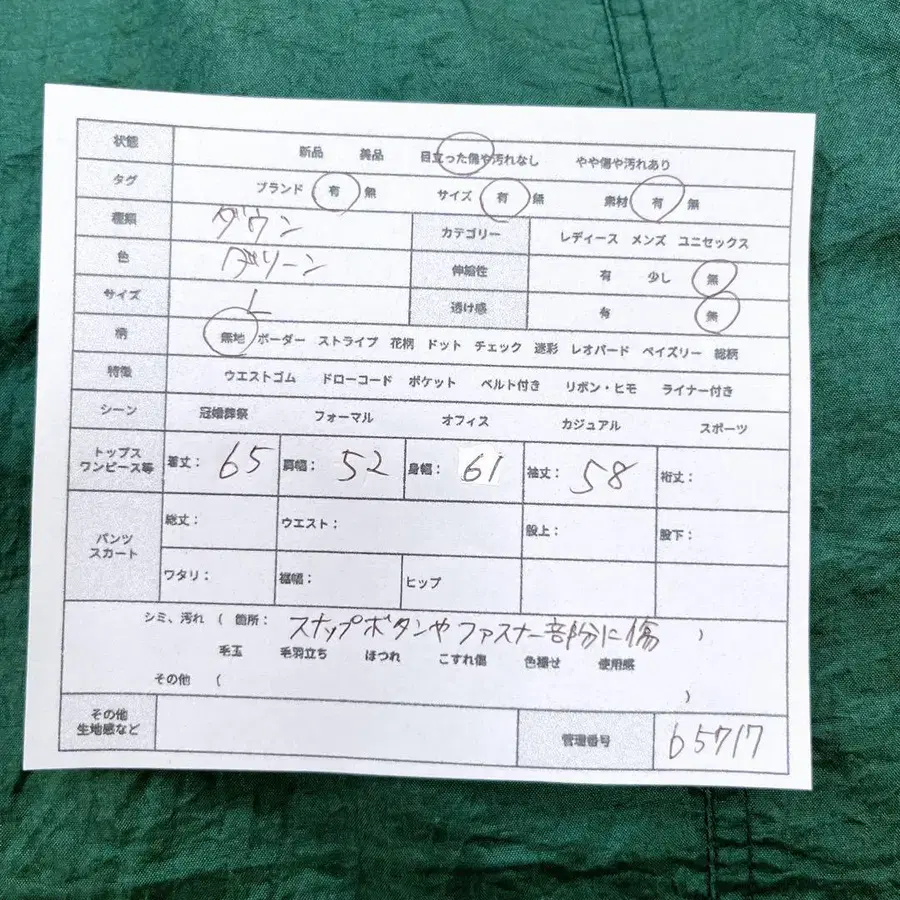 状態 新品 美品 目立った傷や汚れなし やや傷や汚れあり
タグ ブランド 有 無 サイズ 有 無 素材 有 無
種類 ダウン カテゴリー レディース メンズ ユニセックス
色 グリーン 伸縮性 有 少し 無
サイズ L 透け感 有 無
柄 無地 ボーダー ストライプ 花柄 ドット チェック 迷彩 レオパード ペイズリー 総柄
特徴 ウエストゴム ドローコード ポケット ベルト付き リボン・ヒモ ライナー付き
シーン 冠婚葬祭 フォーマル オフィス カジュアル スポーツ
トップス
ワンピース等 着丈: 65 肩幅: 52 身幅: 61 袖丈: 58 裄丈:
パンツ
スカート 総丈: ウエスト: 股上: 股下:
ワタリ: 裾幅: ヒップ
シミ、汚れ ( 箇所: スナップボタンやファスナー部分に傷 )
毛玉 毛羽立ち ほつれ こすれ傷 色褪せ 使用感
その他 ( )
その他
生地感など 管理番号 65717